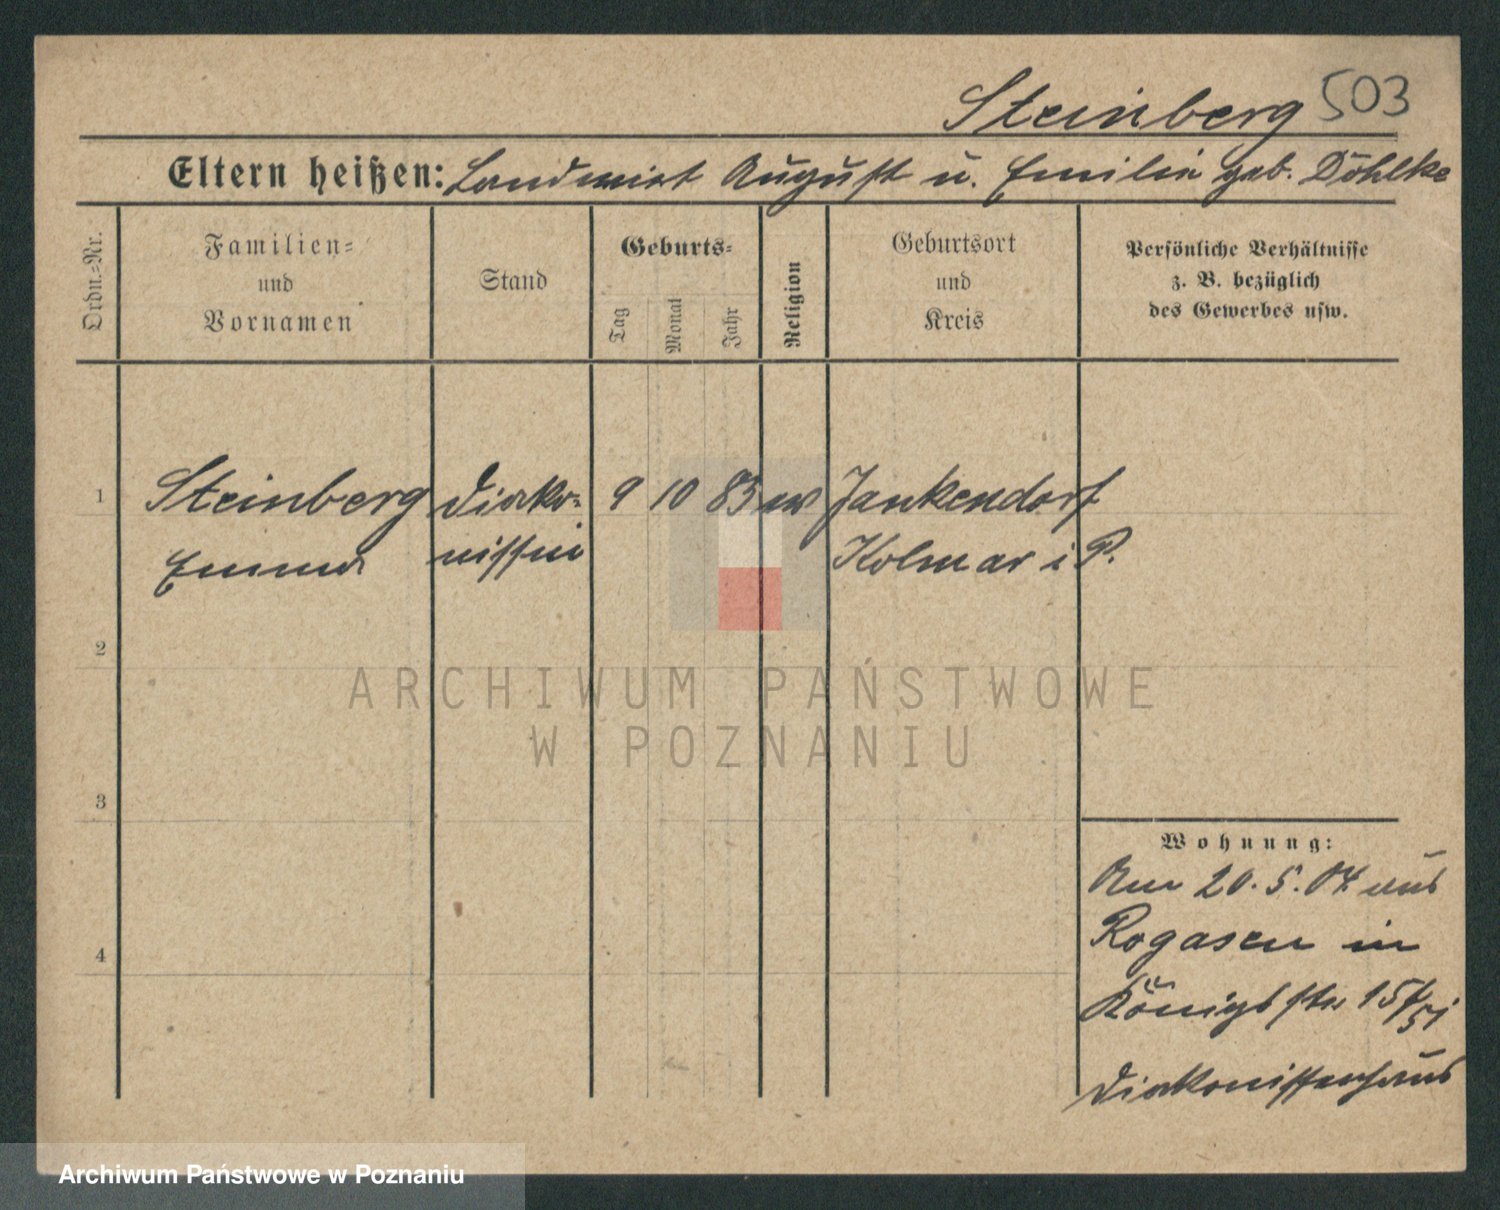 Steinberg 503
Eltern heißen: Landwirt August u. Emilie geb. Döhlke
Ordn.=Nr.
Familien=
und
Vornamen
Stand
Geburts=
Tag
Monat
Jahr
Religion
Geburtsort
und
Kreis
Persönliche Verhältnisse
z. B. bezüglich
des Gewerbes usw.
1 Steinberg Diako= 9 10 83 ev Jankendorf
Emma nissin Kolmar i P.
2
3
4
Wohnung:
Am 20. 5. 04 aus
Rogasen in
Königsstr 15
Diakonissenhaus
ARCHIWUM PAŃSTWOWE
W POZNANIU
Archiwum Państwowe w Poznaniu